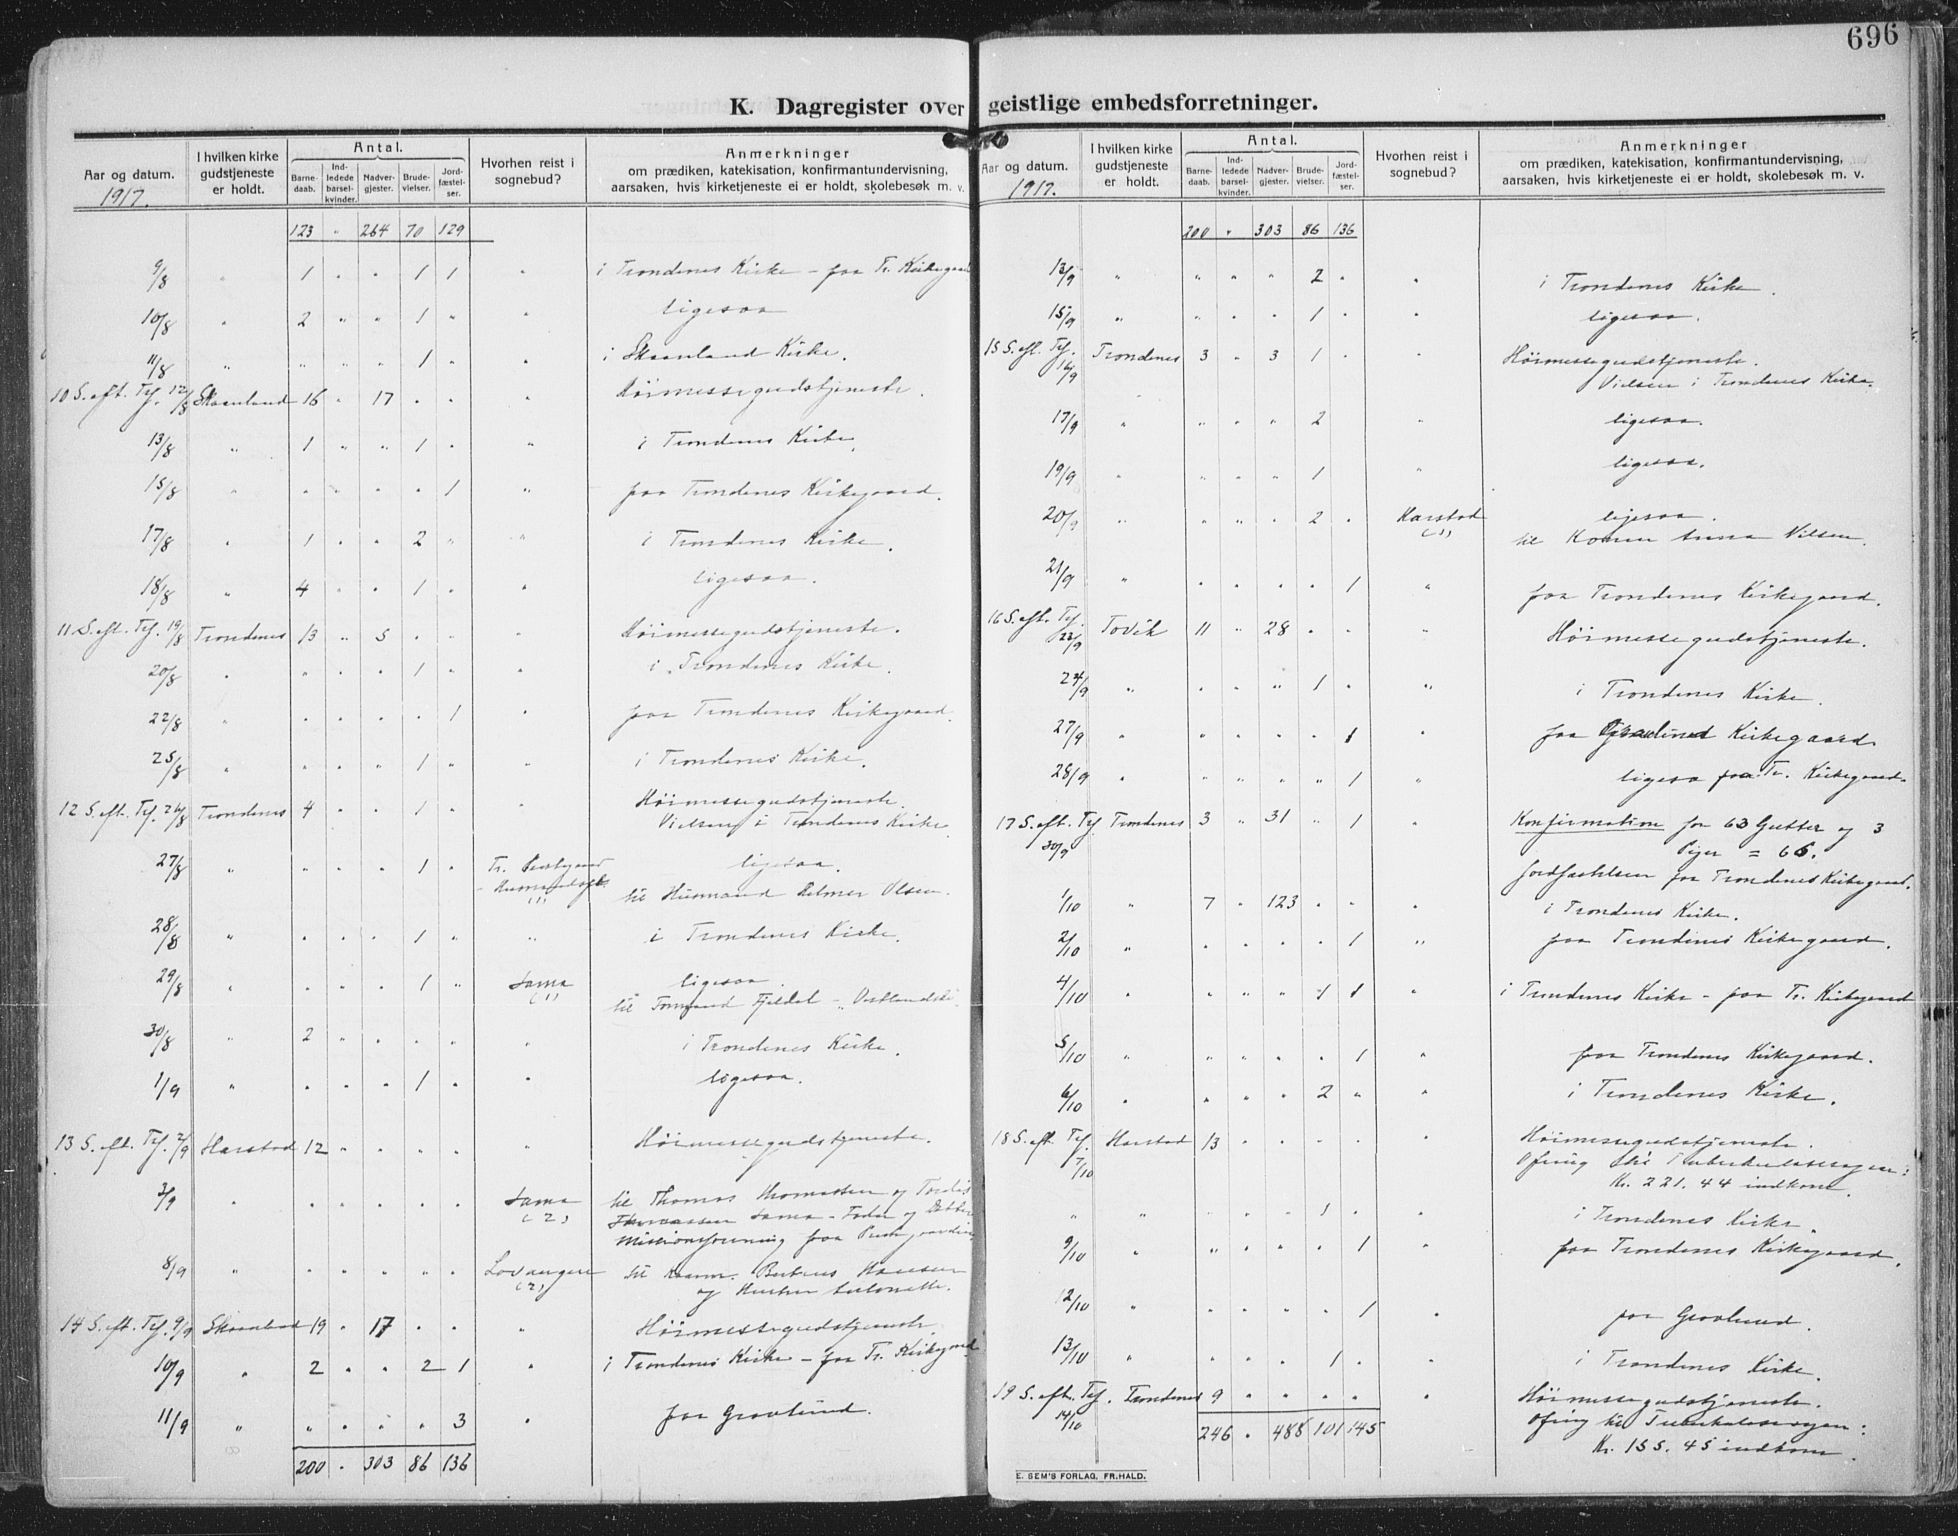 696
K. Dagregister over geistlige embedsforretninger.
Aar og datum.
1917.
I hvilken kirke gudstjeneste er holdt.
Antal.
Barne-daab.
Ind-ledede barsel-kvinder.
Nadver-gjester.
Brude-vielser.
Jord-fæstel-ser.
Hvorhen reist i sognebud?
Anmerkninger
om prædiken, katekisation, konfirmantundervisning,
aarsaken, hvis kirketjeneste ei er holdt, skolebesøk m. v.
123 " 264 70 129
9/8 " 1 " " 1 1 " i Trondenes Kirke - paa Tr. Kirkegaard
10/8 " 2 " " 1 " " ligesaa
11/8 " " " " 1 " " i Skaanland Kirke.
10 S. eft. Tf. 12/8 Skaanland 16 " 17 " " " Høimessegudstjeneste.
13/8 " 1 " " 1 " " i Trondenes Kirke.
15/8 " " " " " 1 " paa Trondenes Kirkegaard.
17/8 " 1 " " 2 " " i Trondenes Kirke.
18/8 " 4 " " 1 " " ligesaa.
11 S. eft. Tf. 19/8 Trondenes 13 " 5 " " " Høimessegudstjeneste.
20/8 " " " " 1 " " i Trondenes Kirke.
22/8 " " " " " 1 " paa Trondenes Kirkegaard.
25/8 " " " " 1 " " i Trondenes Kirke.
12 S. eft. Tf. 26/8 Trondenes 4 " " 1 " " Høimessegudstjeneste.
Vielsen i Trondenes Kirke.
27/8 " " " " 1 " Tr. ligesaa.
(1) til Husmand Olsen.
28/8 " " " " 1 " " i Trondenes Kirke.
29/8 " " " " 1 " Sama ligesaa.
(1) til Fjeldal
30/8 " 2 " " " " " i Trondenes Kirke.
1/9 " " " " 1 " " ligesaa.
13 S. eft. Tf. 2/9 Harstad 12 " " " " " Høimessegudstjeneste.
3/9 " " " " " " Sama til Thomas Thomassen og
(2) Thomassen Sama - Fader og Datter
Missionsforening paa
8/9 " " " " " " Lovangere til Hansen
(2) og Hustru
14 S. eft. Tf. 9/9 Skaanland 19 " 17 " " " Høimessegudstjeneste.
10/9 " 2 " " 2 1 " i Trondenes Kirke - paa Tr. Kirkegaard
11/9 " " " " " 3 " paa Gravlund.
200 " 303 86 136
Aar og datum.
1917.
I hvilken kirke gudstjeneste er holdt.
Antal.
Barne-daab.
Ind-ledede barsel-kvinder.
Nadver-gjester.
Brude-vielser.
Jord-fæstel-ser.
Hvorhen reist i sognebud?
Anmerkninger
om prædiken, katekisation, konfirmantundervisning,
aarsaken, hvis kirketjeneste ei er holdt, skolebesøk m. v.
200 " 303 86 136
13/9 " " " " 2 " " i Trondenes Kirke.
15/9 " " " " 1 " " ligesaa.
15 S. eft. Tf. 16/9 Trondenes 3 " 3 1 " " Høimessegudstjeneste.
Vielsen i Trondenes Kirke.
17/9 " " " " 2 " ligesaa.
19/9 " " " " 1 " ligesaa.
20/9 " " " " 2 " Harstad ligesaa.
(1) til Anna Nilsen.
21/9 " " " " " 1 " paa Trondenes Kirkegaard.
16 S. eft. Tf. 23/9 Tovik 11 " 28 " " " Høimessegudstjeneste.
24/9 " " " " 1 " " i Trondenes Kirke.
27/9 " " " " " 1 " paa Gravlund Kirkegaard
28/9 " " " " " 1 " ligesa paa Tr. Kirkegaard.
17 S. eft. Tf. 30/9 Trondenes 3 " 31 " 1 " Konfirmation for 63 Gutter og 3
Piger = 66.
Jordfæstelsen paa Trondenes Kirkegaard.
1/10 " 7 " 123 " " " i Trondenes Kirke.
2/10 " " " " " 1 " paa Trondenes Kirkegaard.
4/10 " " " " 1 1 " i Trondenes Kirke - paa Tr. Kirkegaard
5/10 " " " " " 1 " paa Trondenes Kirkegaard.
6/10 " " " " 2 " " i Trondenes Kirke.
18 S. eft. Tf. 7/10 Harstad 13 " " " " " Høimessegudstjeneste.
Ofring til Tuberkulosesagen:
Kr. 221.44 indkom.
" " " " " 1 " i Trondenes Kirke.
9/10 " " " " " 1 " paa Trondenes Kirkegaard.
12/10 " " " " " 1 " paa Gravlund.
13/10 " " " " 1 " " i Trondenes Kirke.
19 S. eft. Tf. 14/10 Trondenes 9 " " " " " Høimessegudstjeneste.
Ofring til Tuberkulosesagen:
Kr. 155.45 indkom
246 " 488 101 145
E. SEM'S FORLAG, FR.HALD.